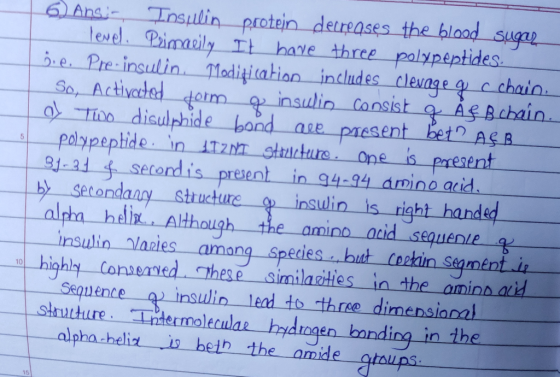 6) Ans:- Insulin protein decreases the blood sugar
level. Primarily It have three polypeptides.
i.e. Pre-insulin. Modification includes clevage of c chain.
So, Activated form of insulin consist of A & B chain.
a) Two disulphide bond are present betn A & B
5
polypeptide. in 1TZNI structure. one is present
31-31 & second is present in 94-94 amino acid.
b) secondary structure of insulin is right handed
alpha helix. Although the amino acid sequence of
insulin varies among species, but certain segment is
10
highly conserved. These similarities in the amino acid
sequence of insulin lead to three dimensional
structure. Intermolecular hydrogen bonding in the
alpha-helix is betn the amide groups.
15